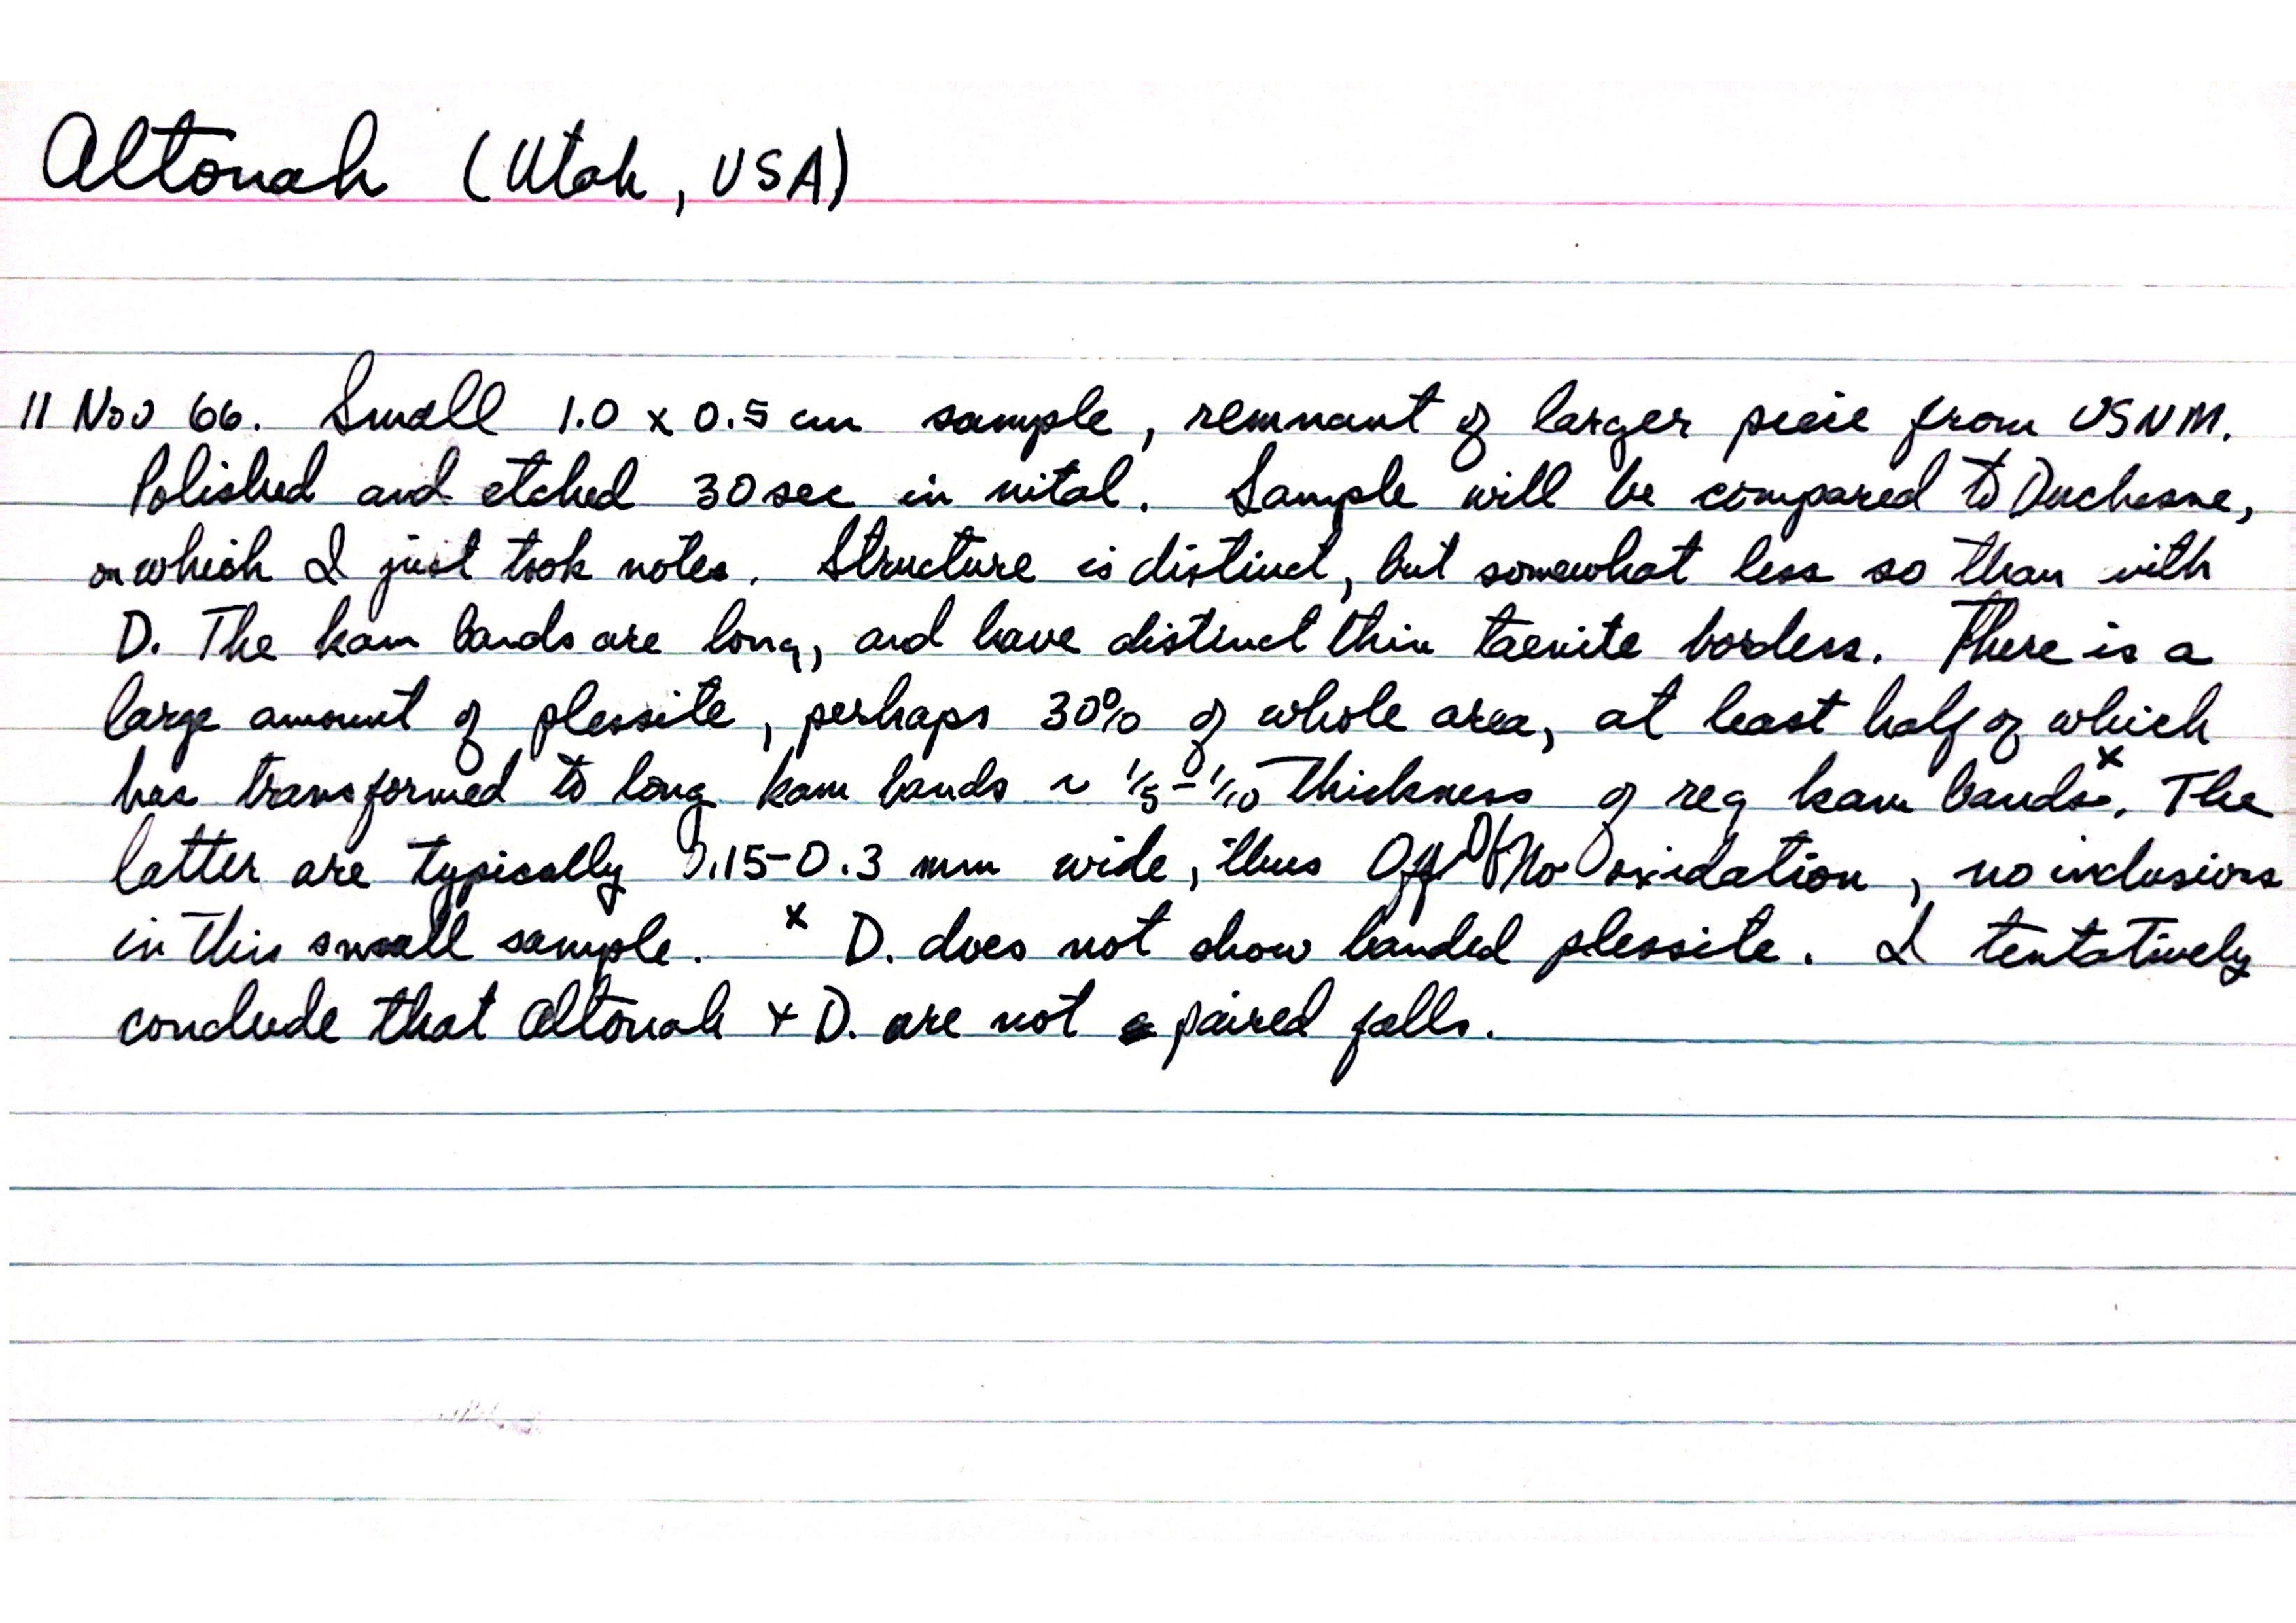 Altonah (Utah, USA)
11 Nov 66. Small 1.0 x 0.5 cm sample, remnant of larger piece from USNM.
Polished and etched 30 sec in nital. Sample will be compared to Duchesne,
on which I just took notes. Structure is distinct, but somewhat less so than with
D. The kam bands are long, and have distinct thin taenite borders. There is a
large amount of plessite, perhaps 30% of whole area, at least half of which
has transformed to long kam bands ~ 1/5-1/10 thickness of reg kam bands x. The
latter are typically 0.15-0.3 mm wide, thus Off No oxidation, no inclusions
in this small sample. x D. does not show banded plessite. I tentatively
conclude that Altonah + D. are not paired falls.